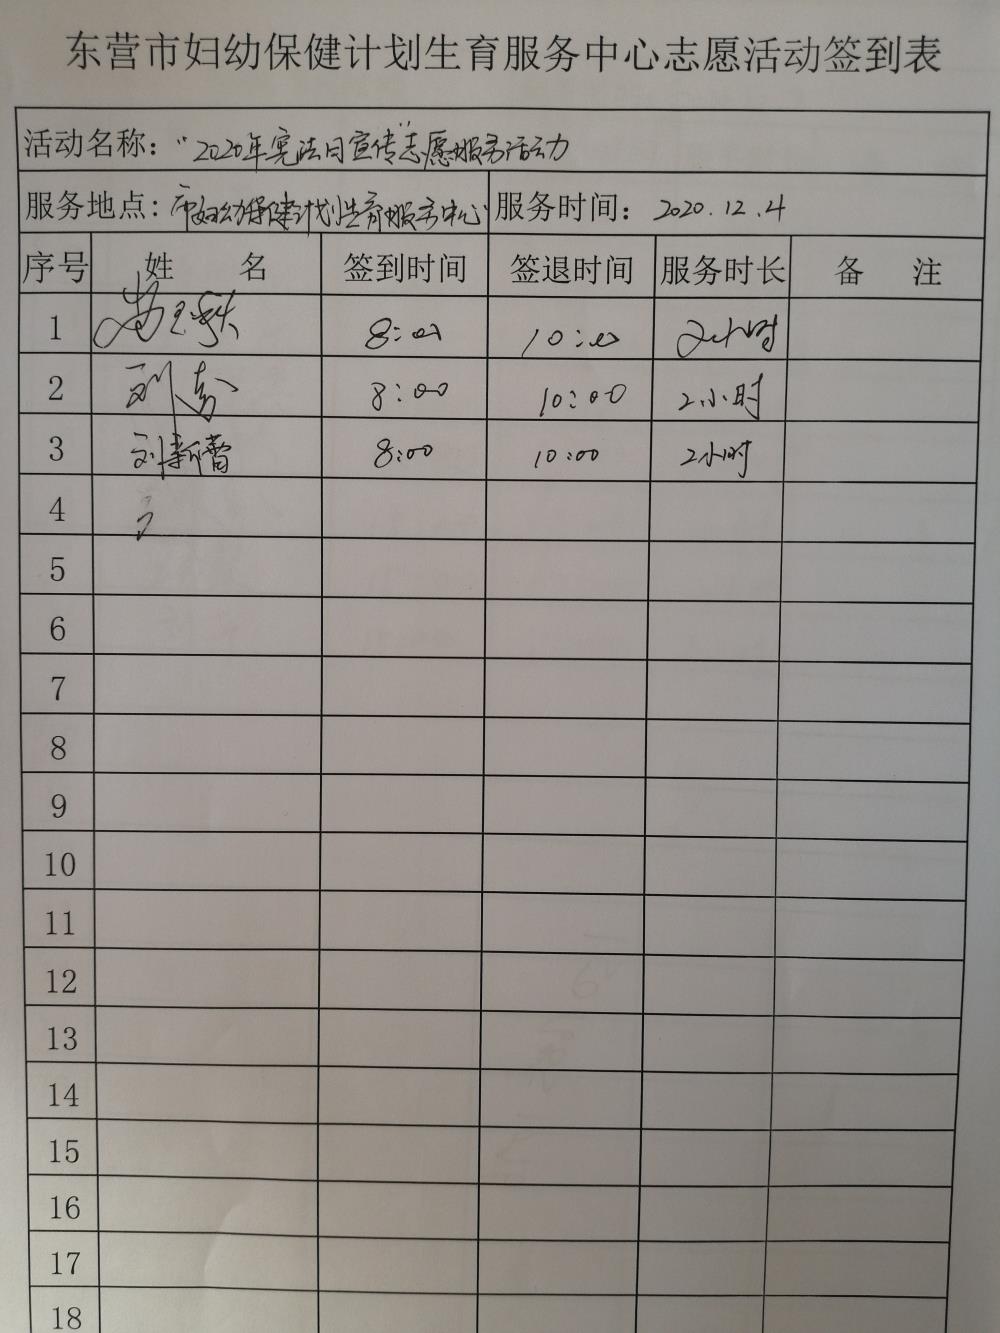 东营市妇幼保健计划生育服务中心志愿活动签到表
活动名称："2020年宪法日宣传"志愿服务活动
服务地点：市妇幼保健计划生育服务中心 服务时间：2020.12.4
序号 姓 名 签到时间 签退时间 服务时长 备 注
1 8:00 10:00 2小时
2 刘 8:00 10:00 2小时
3 刘新蕾 8:00 10:00 2小时
4
5
6
7
8
9
10
11
12
13
14
15
16
17
18